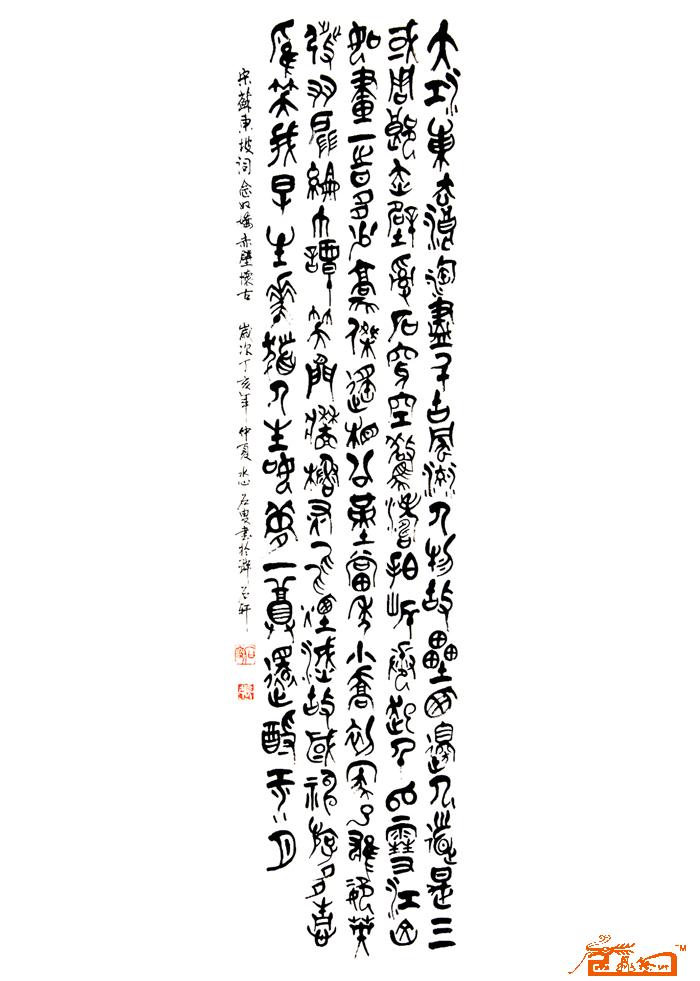 大江東去浪淘盡千古風流人物故壘西邊人道是三
或周郎赤壁亂石穿空驚濤拍岸捲起千堆雪江山
如畫一時多少豪傑遙想公瑾當年小喬初嫁了雄姿英
發羽扇綸巾談笑間檣櫓灰飛煙滅故國神遊多情
應笑我早生華髮人生如夢一尊還酹江月
宋蘇東坡詞念奴嬌赤壁懷古 歲次丁亥年仲夏 石叟書於石軒